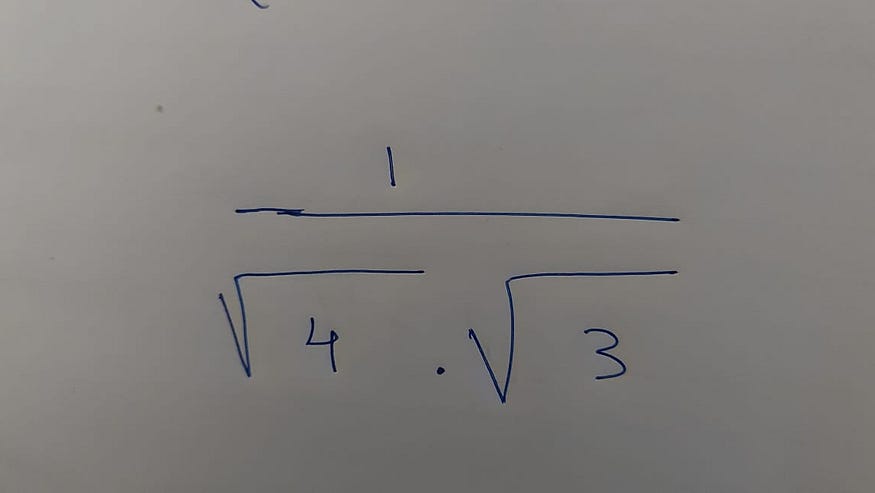 1
√4 . √3